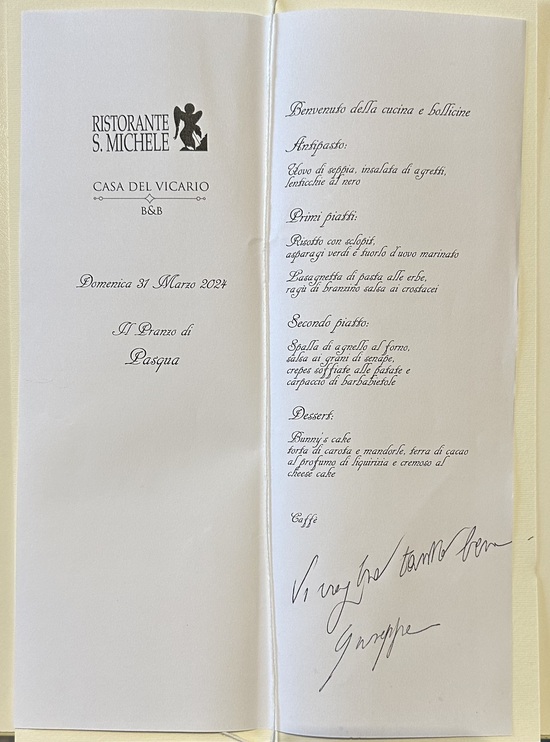 RISTORANTE
S. MICHELE
CASA DEL VICARIO
B&B
Domenica 31 Marzo 2024
Il Pranzo di
Pasqua
Benvenuto della cucina e bollicine
Antipasto:
Uovo di seppia, insalata di agretti,
lenticchie al nero
Primi piatti:
Risotto con sclopit,
asparagi verdi e tuorlo d'uovo marinato
Lasagnetta di pasta alle erbe,
ragù di branzino salsa ai crostacei
Secondo piatto:
Spalla di agnello al forno,
salsa ai grani di senape,
crepes soffiate alle patate e
carpaccio di barbabietole
Dessert:
Bunny's cake
torta di carota e mandorle, terra di cacao
al profumo di liquirizia e cremoso al
cheese cake
Caffè
Vi voglio tanto bene
Giuseppe